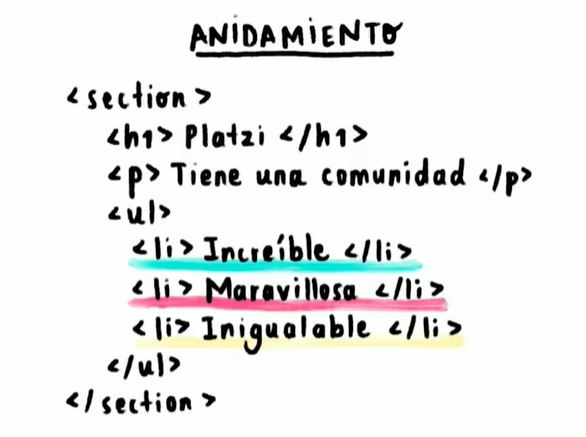 ANIDAMIENTO
<section>
<h1> Platzi </h1>
<p> Tiene una comunidad </p>
<ul>
<li> Increíble </li>
<li> Maravillosa </li>
<li> Inigualable </li>
</ul>
</section>